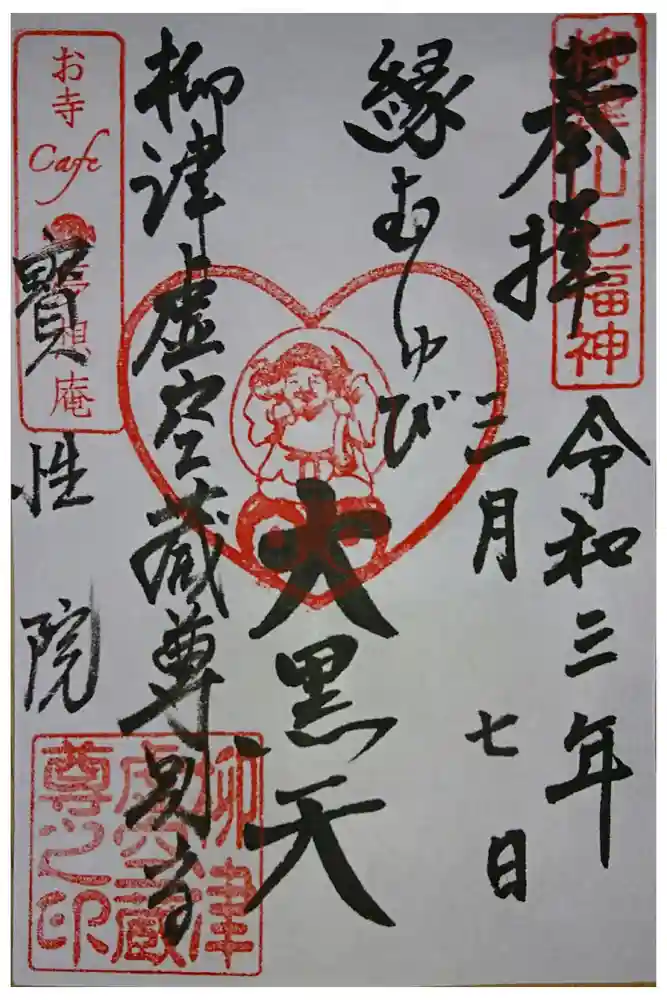 柳津山七福神
奉拝
令和三年
三月七日
縁むすび
大黒天
柳津虚空蔵尊別当
寶性院
お寺
Cafe
夢想庵
柳津
虚空蔵
尊之印